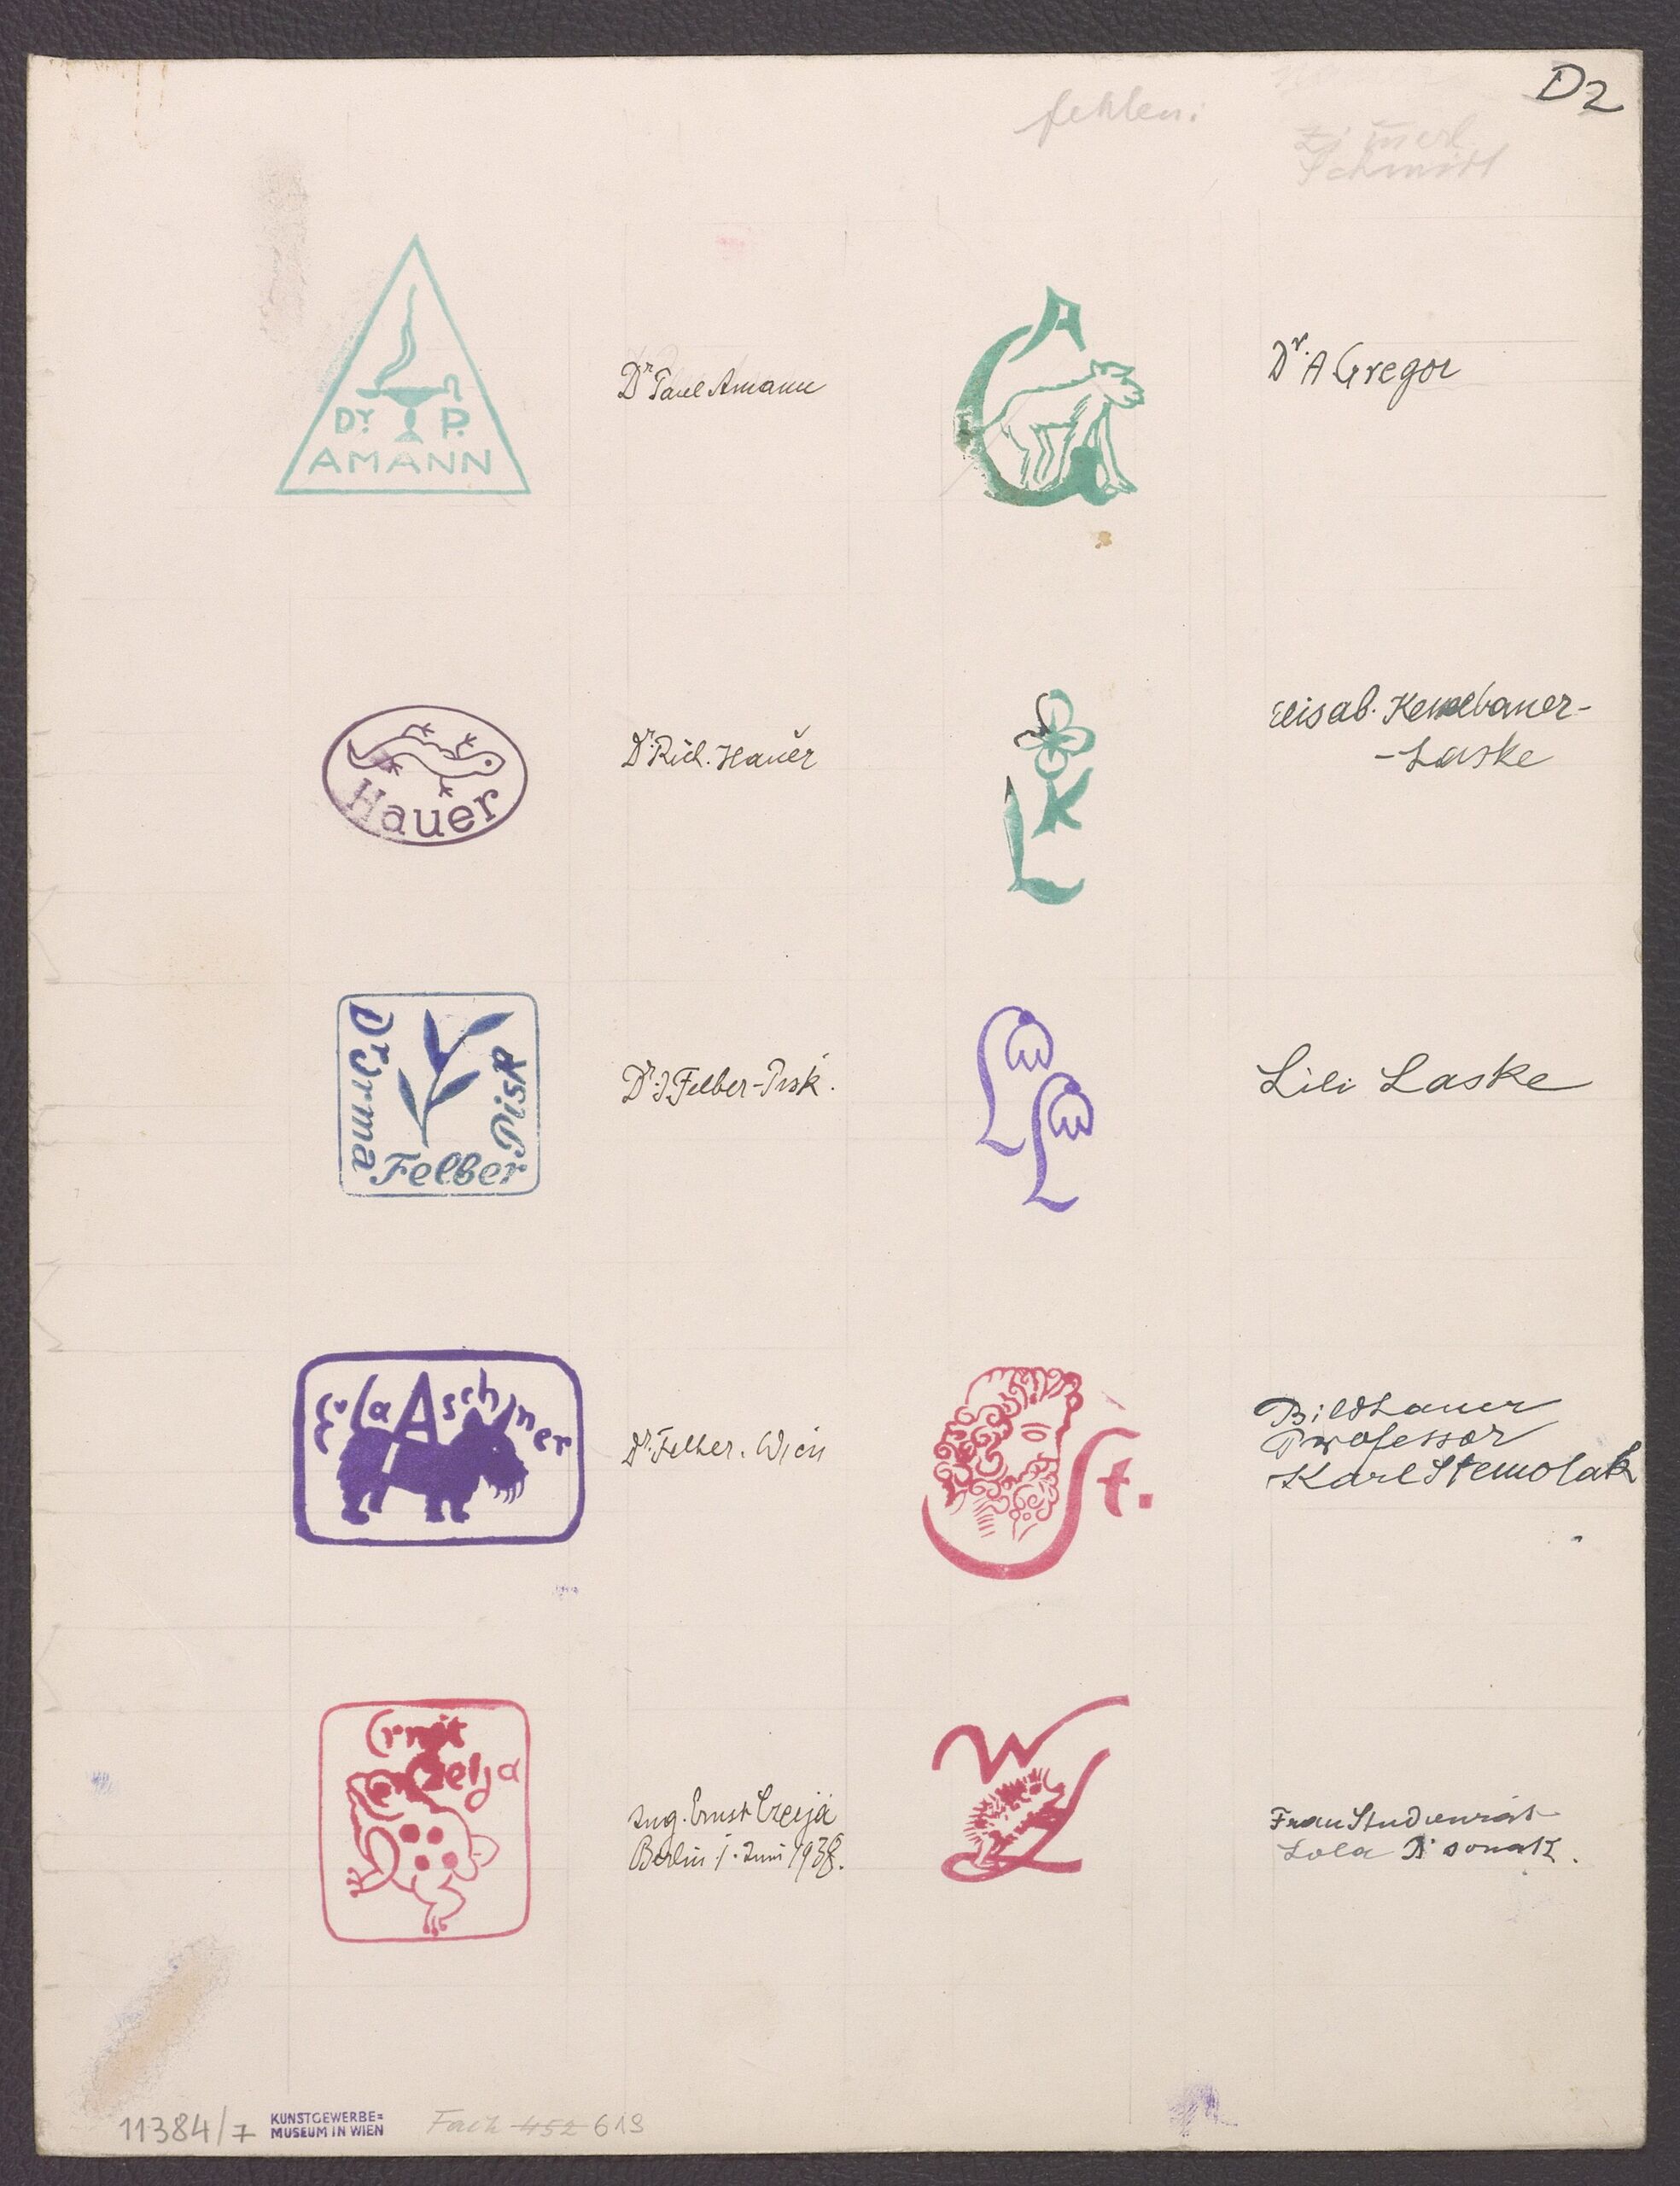 D2
fehlen:
Schmidt
Dr. P.
AMANN
Dr Paul Amann
A G
Dr. A Gregor
Hauer
Dr. Rich. Hauer
K
L
Elisab.
-Laske
Dr Irma
Felber
Pisk
Dr. J Felber-Pisk.
L L
Lili Laske
Ela Aschner
Dr. Felber. Wien
St.
Bildhauer
Professor
Karl Stemolak
Ernst
Czeija
Ing. Ernst Czeija
Berlin 1. Juni 1938.
W
L
Frau Studienrat
Lola
11384/7
KUNSTGEWERBE=
MUSEUM IN WIEN
Fach 452 619